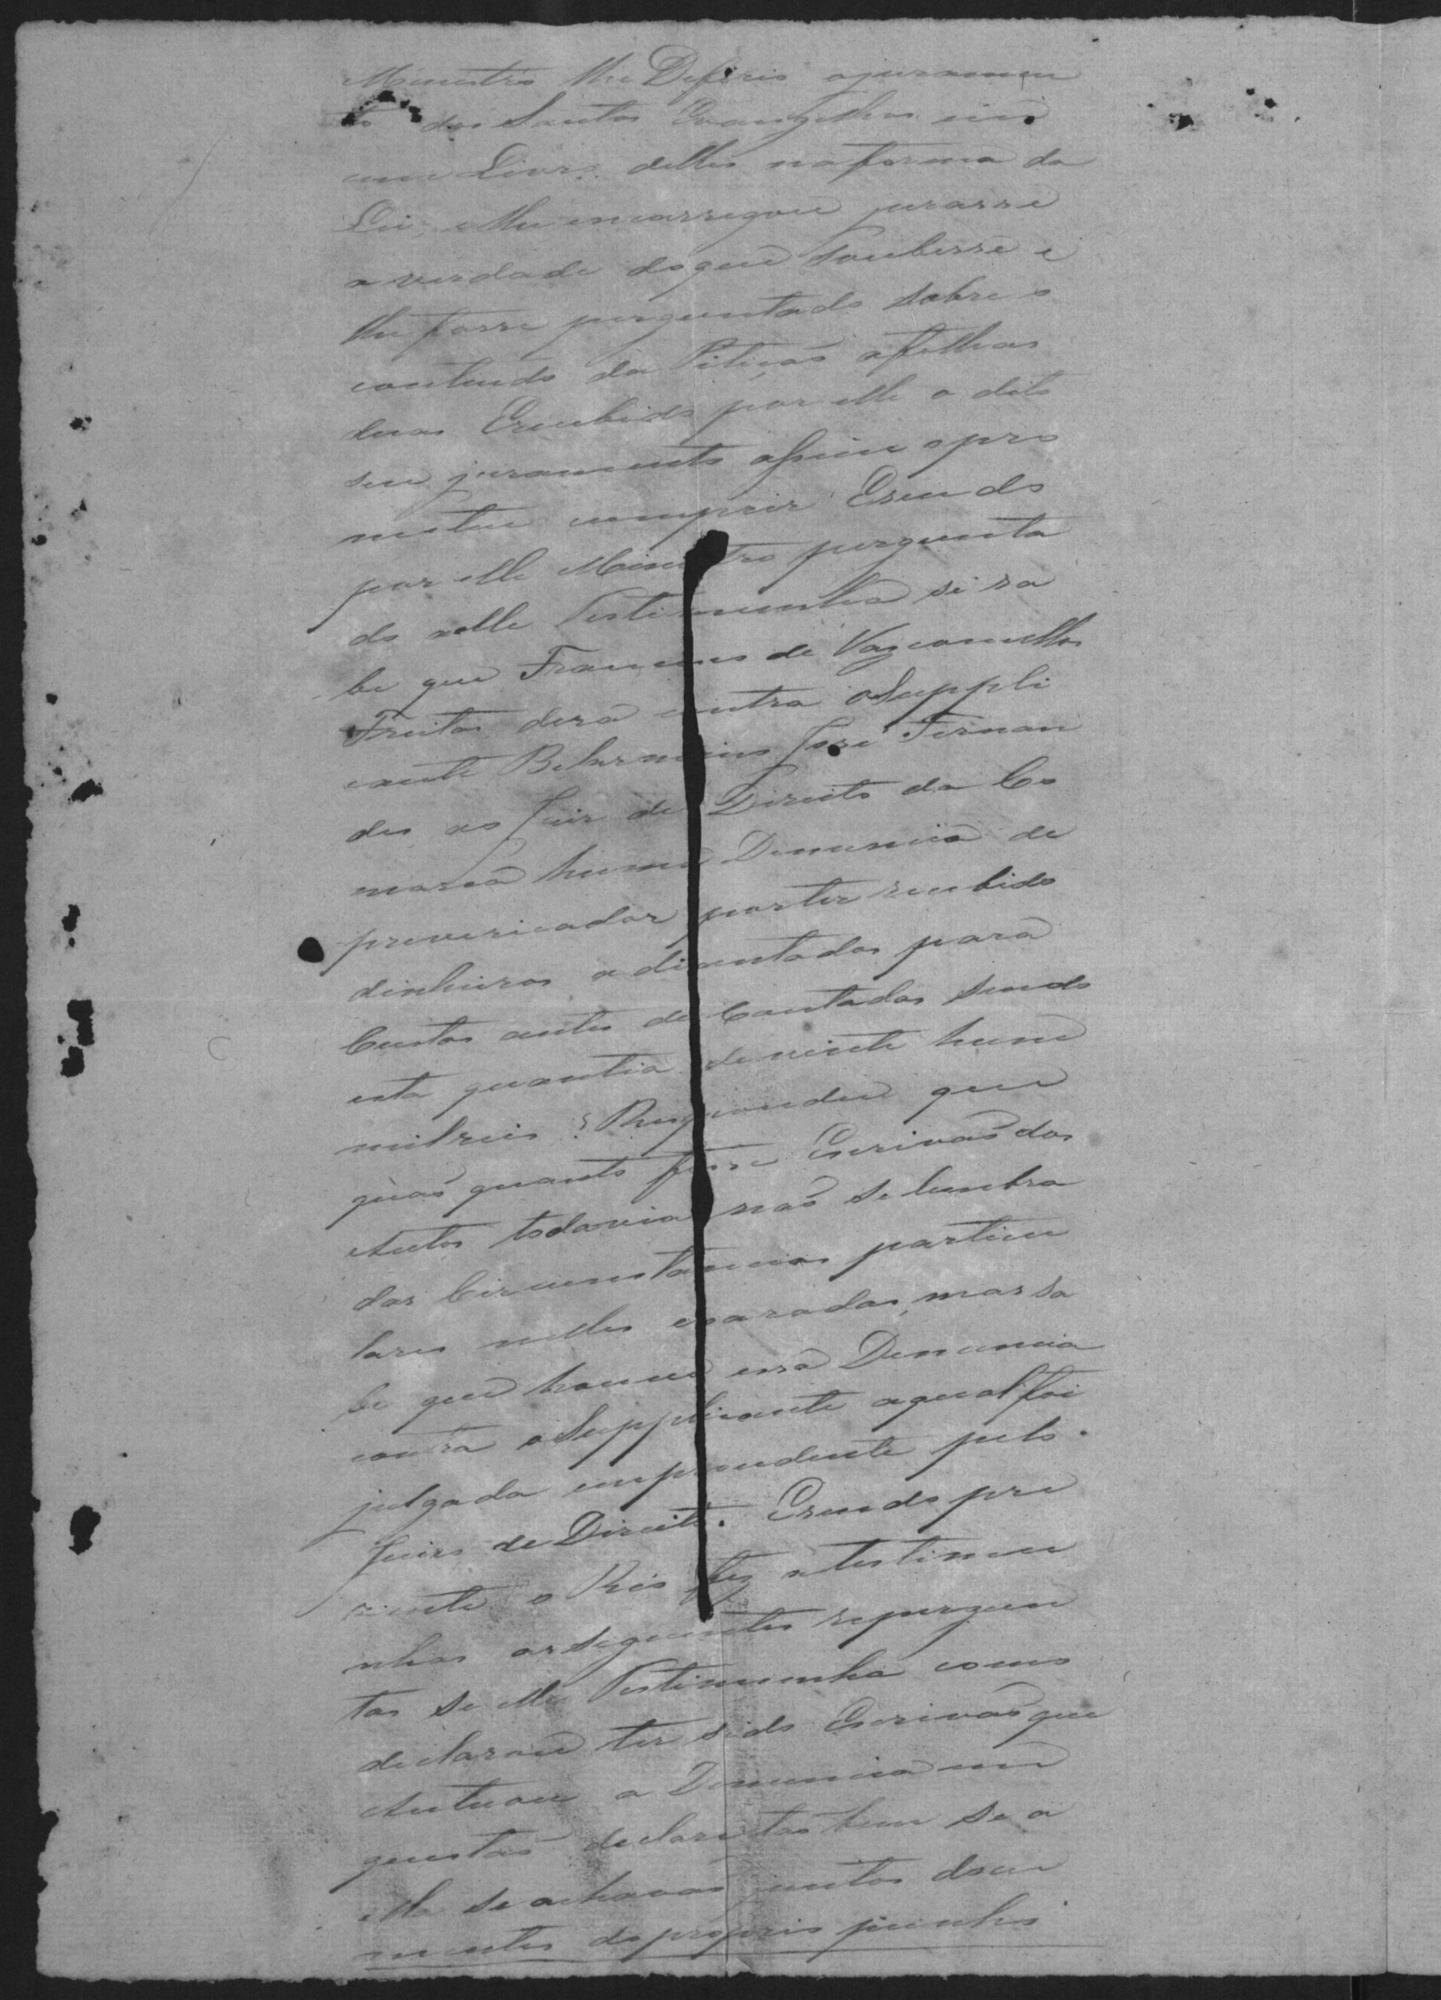 Ministro lhe Deferio o juramen
to dos Santos Evangelhos em
um Livro delles na forma da
Lei, e lhe encarregou jurasse
a verdade do que soubesse e
lhe fosse perguntado sobre o
contendo da Petição a folhas
duas Erecebido por elle o dito
seu juramento assim o pro
metteu cumprir Esendo
por elle Ministro pergunta
do a elle Testimunha se sa
be que Francisco de Vasconcellos
Freitas dera contra o Suppli
cante Belarmino José Fernan
des ao Juiz de Direito da Co
marca huma Denuncia de
prevericador por ter recebido
dinheiros adiantados para
Custas antes de Contadas sendo
esta quantia de vinte hum
milreis? Respondeu que
quão quanto fosse Escrivão dos
Autos todavia não se lembra
das Circunstancias particu
lares nelles exaradas, mas sa
be que houve essa Denuncia
contra o Supplicante a qual foi
julgada improcedente pelo
Juiz de Direito. Esendo pre
zente o Réo fez a testimu
nhas as seguintes repergun
tas se elle Testimunha como
declarou ter sido Escrivão que
Autuou a Denuncia em
questão declare tão bem se a
ella se achavão juntos docu
mentos do proprio punho